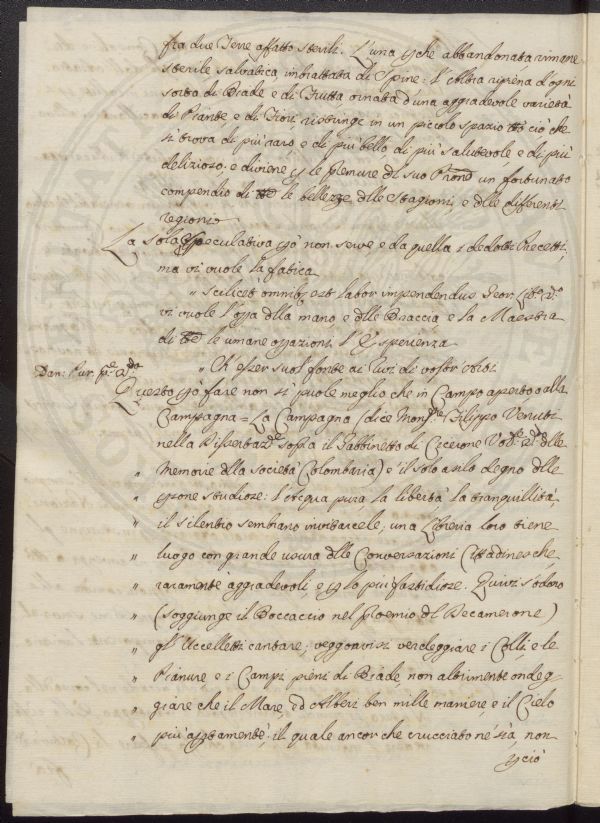 fra due Terre affatto sterili. L'una pchè abbandonata rimane
sterile salvatica, imbrattata di Spine: l'Altra ripiena d'ogni
sorta di Biade e di Frutta ornata d'una aggradevole varietà
di Piante, e di Fiori, ristringe in un piccolo spazio ciò che
si trova di più raro, e di più bello di più salutevole e di più
delizioso; e diviene p le premure di suo Prone un fortunato
compendio di tte le bellezze dlle Stagioni, e dlle differenti
regioni.
La sola Speculativa pò non serve e da quella i dedotti Precetti,
ma vi vuole la fatica
" Scilicet omnibq est labor impendendus Geor. Lib.o 2.o
vi vuole l'opa dlla mano, e dlle Braccia, e la Maestra
di tte le umane opazioni, l'Esperienza
" Ch'esser suol fonte ai Rivi di vostr'Arti
Dan: Pur. pe 2da
Questo pò fare non si puole meglio che in Campo aperto o alla
Campagna = La Campagna (dice Mons.re Filippo Venuti
nella Dissertaz.e sopra il Gabbinetto di Cicerone Vol. 2.do dlle
" Memorie dlla Società Colombaria) e' il solo asilo degno dlle
" psone studiose: l'Acqua pura la libertà la tranquillità,
" il silentio sembrano invitarcele; una Libreria loro tiene
" luogo con grande usura dlle Conversazioni Cittadinesche
" raramente aggradevoli, e p lo più fastidiose. Quivi s'odono
" (soggiunge il Boccaccio nel Proemio dl Decamerone)
" gl'Uccelletti cantare; veggonvisi verdeggiare i Colli, e le
" Pianure, e i Campi pieni di Biade, non altrimente ondeg-
" giare che il Mare, ed Alberi ben mille maniere, e il Cielo
" più aptamente; il quale ancor che crucciato ne sia, non
pciò